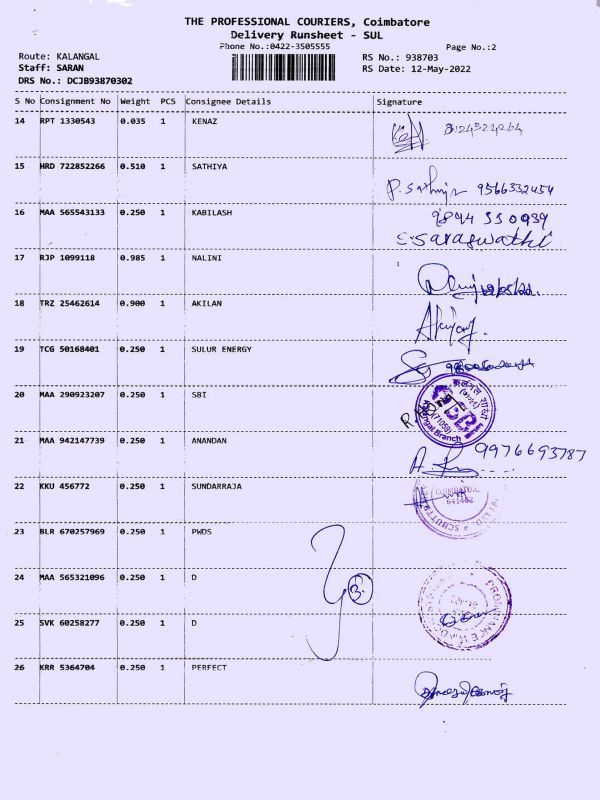 THE PROFESSIONAL COURIERS, Coimbatore
Delivery Runsheet - SUL
Phone No.:0422-3505555
Page No.:2
Route: KALANGAL
RS No.: 938703
Staff: SARAN
RS Date: 12-May-2022
DRS No.: DCJB93870302
S No Consignment No Weight PCS Consignee Details Signature
14 RPT 1330543 0.035 1 KENAZ
15 HRD 722852266 0.510 1 SATHIYA
P. Sathiya 9566332454
16 MAA 565543133 0.250 1 KABILASH 9894 550939
S. Saraswathi
17 RJP 1099118 0.985 1 NALINI
18 TRZ 25462614 0.900 1 AKILAN
19 TCG 50168401 0.250 1 SULUR ENERGY
20 MAA 290923207 0.250 1 SBI
Branch
21 MAA 942147739 0.250 1 ANANDAN 9976693787
22 KKU 456772 0.250 1 SUNDARRAJA
23 BLR 670257969 0.250 1 PWDS
24 MAA 565321096 0.250 1 D
25 SVK 60258277 0.250 1 D
26 KRR 5364704 0.250 1 PERFECT